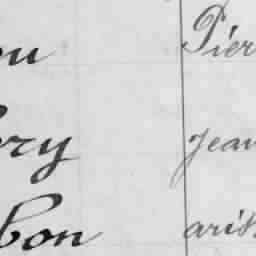 ou Pier
ery Jean
bon aris